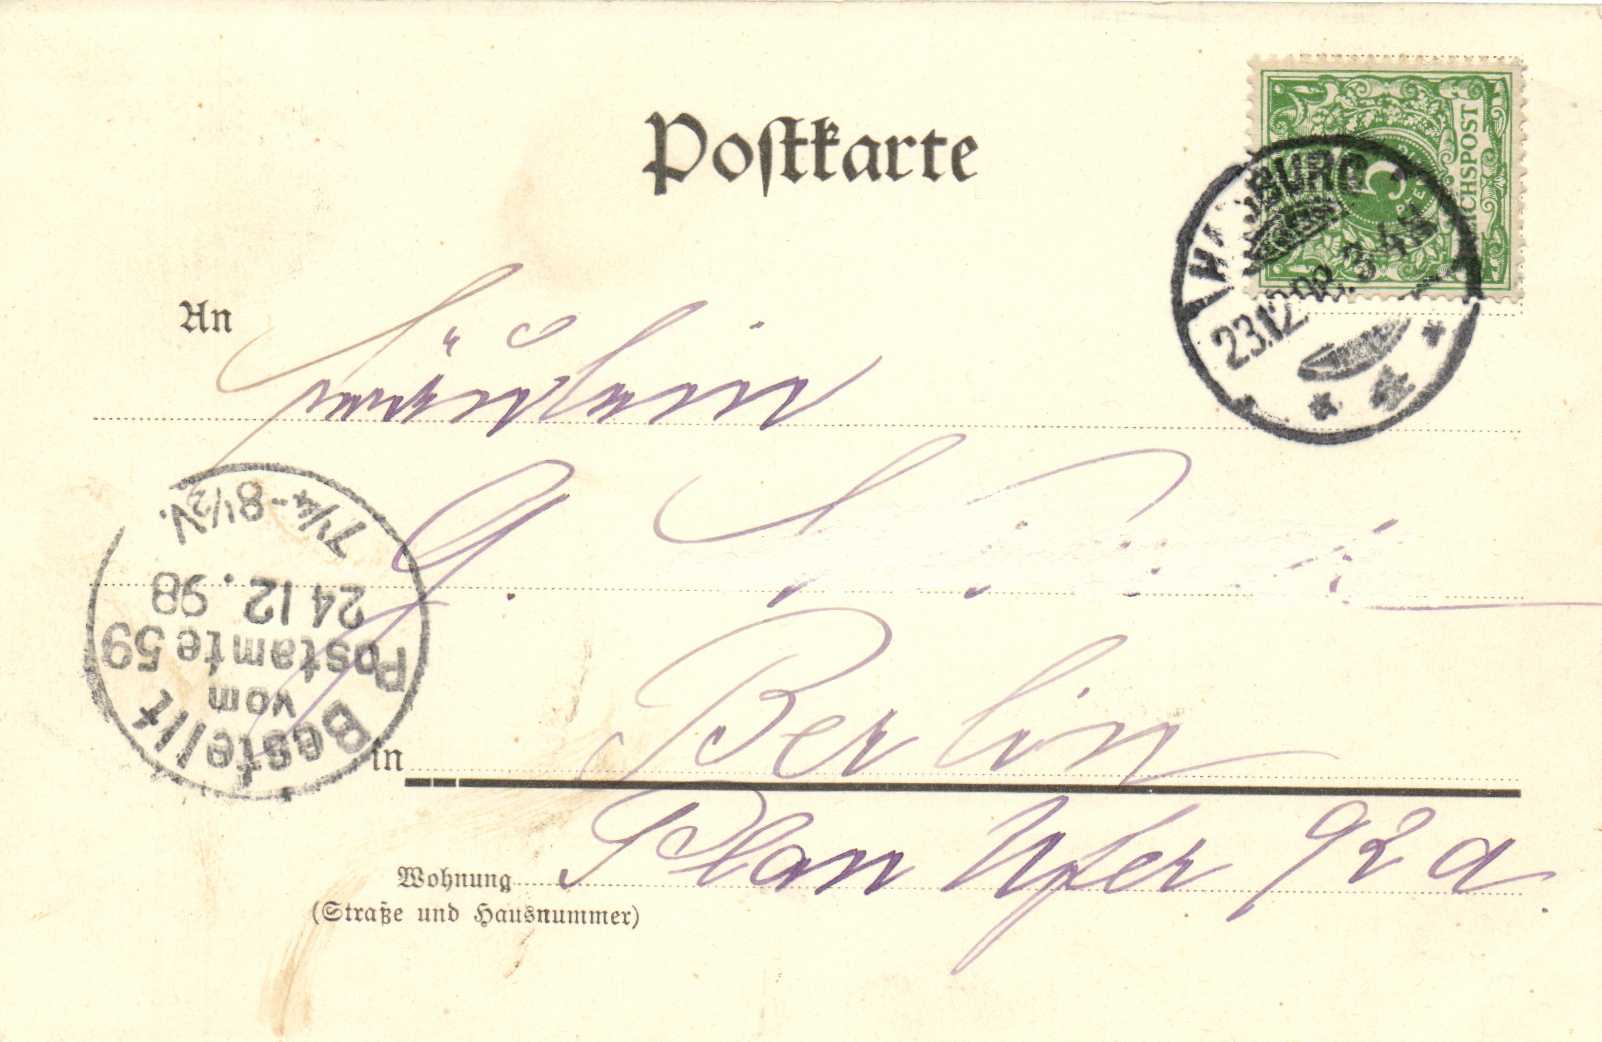 Postkarte
REICHSPOST
5
HAMBURG
23.12.98. 3-4 N
An
Fräulein
G.
in Berlin
Wohnung Plan Ufer 92 a.
(Straße und Hausnummer)
Bestellt
vom
Postamte 59
24 12. 98
7¼-8½V.